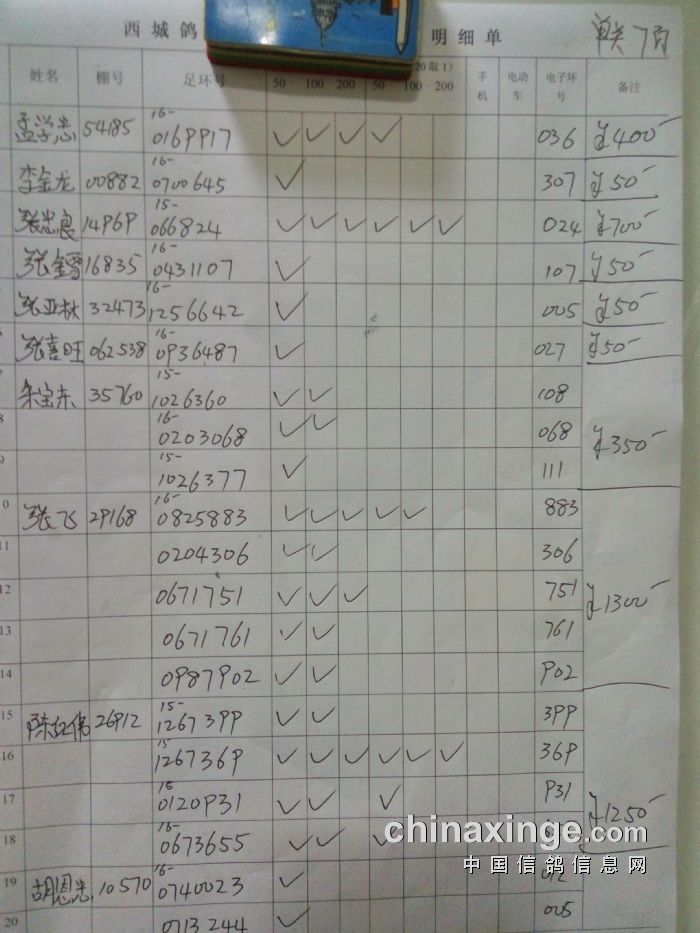 西城鸽 明细单 单关 7页
姓名 棚号 足环号 50 100 200 50 100 200 (20取1) 手机 电动车 电子环号 备注
孟学忠 54185 16-0169917 ✓ ✓ ✓ ✓ 036 ¥400-
李金龙 00882 16-0700645 ✓ 307 ¥50-
张忠良 14969 15-066824 ✓ ✓ ✓ ✓ ✓ ✓ 024 ¥700-
16835 16-0431107 ✓ 107 ¥50-
张亚林 32473 16-1256642 ✓ 005 ¥50-
张喜旺 062538 16-0936487 ✓ 027 ¥50-
7 朱宝东 35760 15-1026360 ✓ ✓ 108
8 16-0203068 ✓ ✓ 068 ¥350-
9 15-1026377 ✓ 111
10 张飞 29168 16-0825883 ✓ ✓ ✓ ✓ ✓ 883
11 0204306 ✓ ✓ 306
12 0671751 ✓ ✓ ✓ 751 ¥1300-
13 0671761 ✓ ✓ 761
14 0987902 ✓ ✓ 902
15 陈红伟 26912 15-1267399 ✓ ✓ 399
16 15-1267369 ✓ ✓ ✓ ✓ ✓ ✓ 369
17 0120931 ✓ ✓ ✓ 931 ¥1250-
18 16-0673655 ✓ ✓ ✓
19 胡恩忠 10570 16-0740023 ✓
20 0713244 ✓ 005
chinaxinge.com
中国信鸽信息网